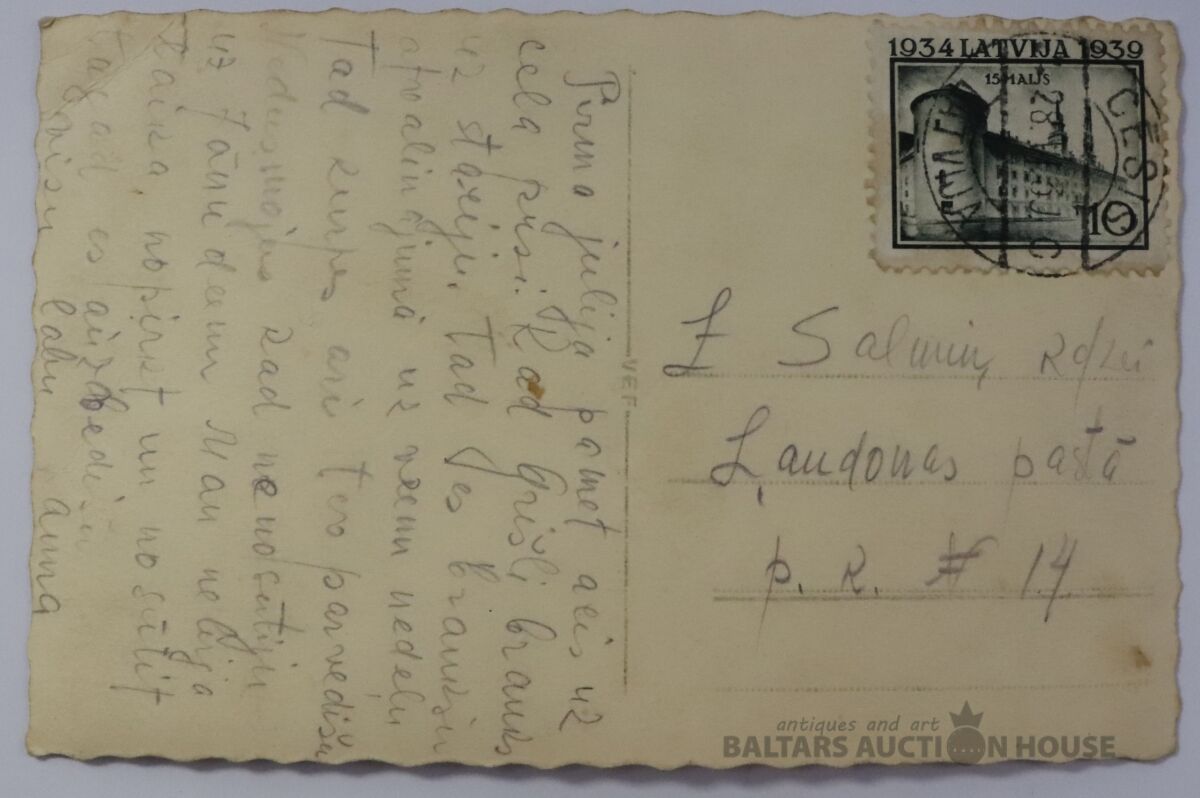 Pirma julija pamet acis uz
ceļa pusi. Kad Grišļi brauks
uz staciju. Tad Jes braukšu
atvaļinajumā uz vienu nedeļu
Tad kurpes ari tev parvedišu
Nedusmojies kad nenosutiju
uz Jāņu deenu Man nebija
laika nopirkt un nosūtit
Tagad es aizvedišu
visu labu anna
VEF
1934 LATVIJA 1939
15 MAIJS
10
CĒSIS
LATVIJA
28.
Z Salmiņ kdzei
Ļaudonas pastā
p. k. # 14
antiques and art
BALTARS AUCTION HOUSE